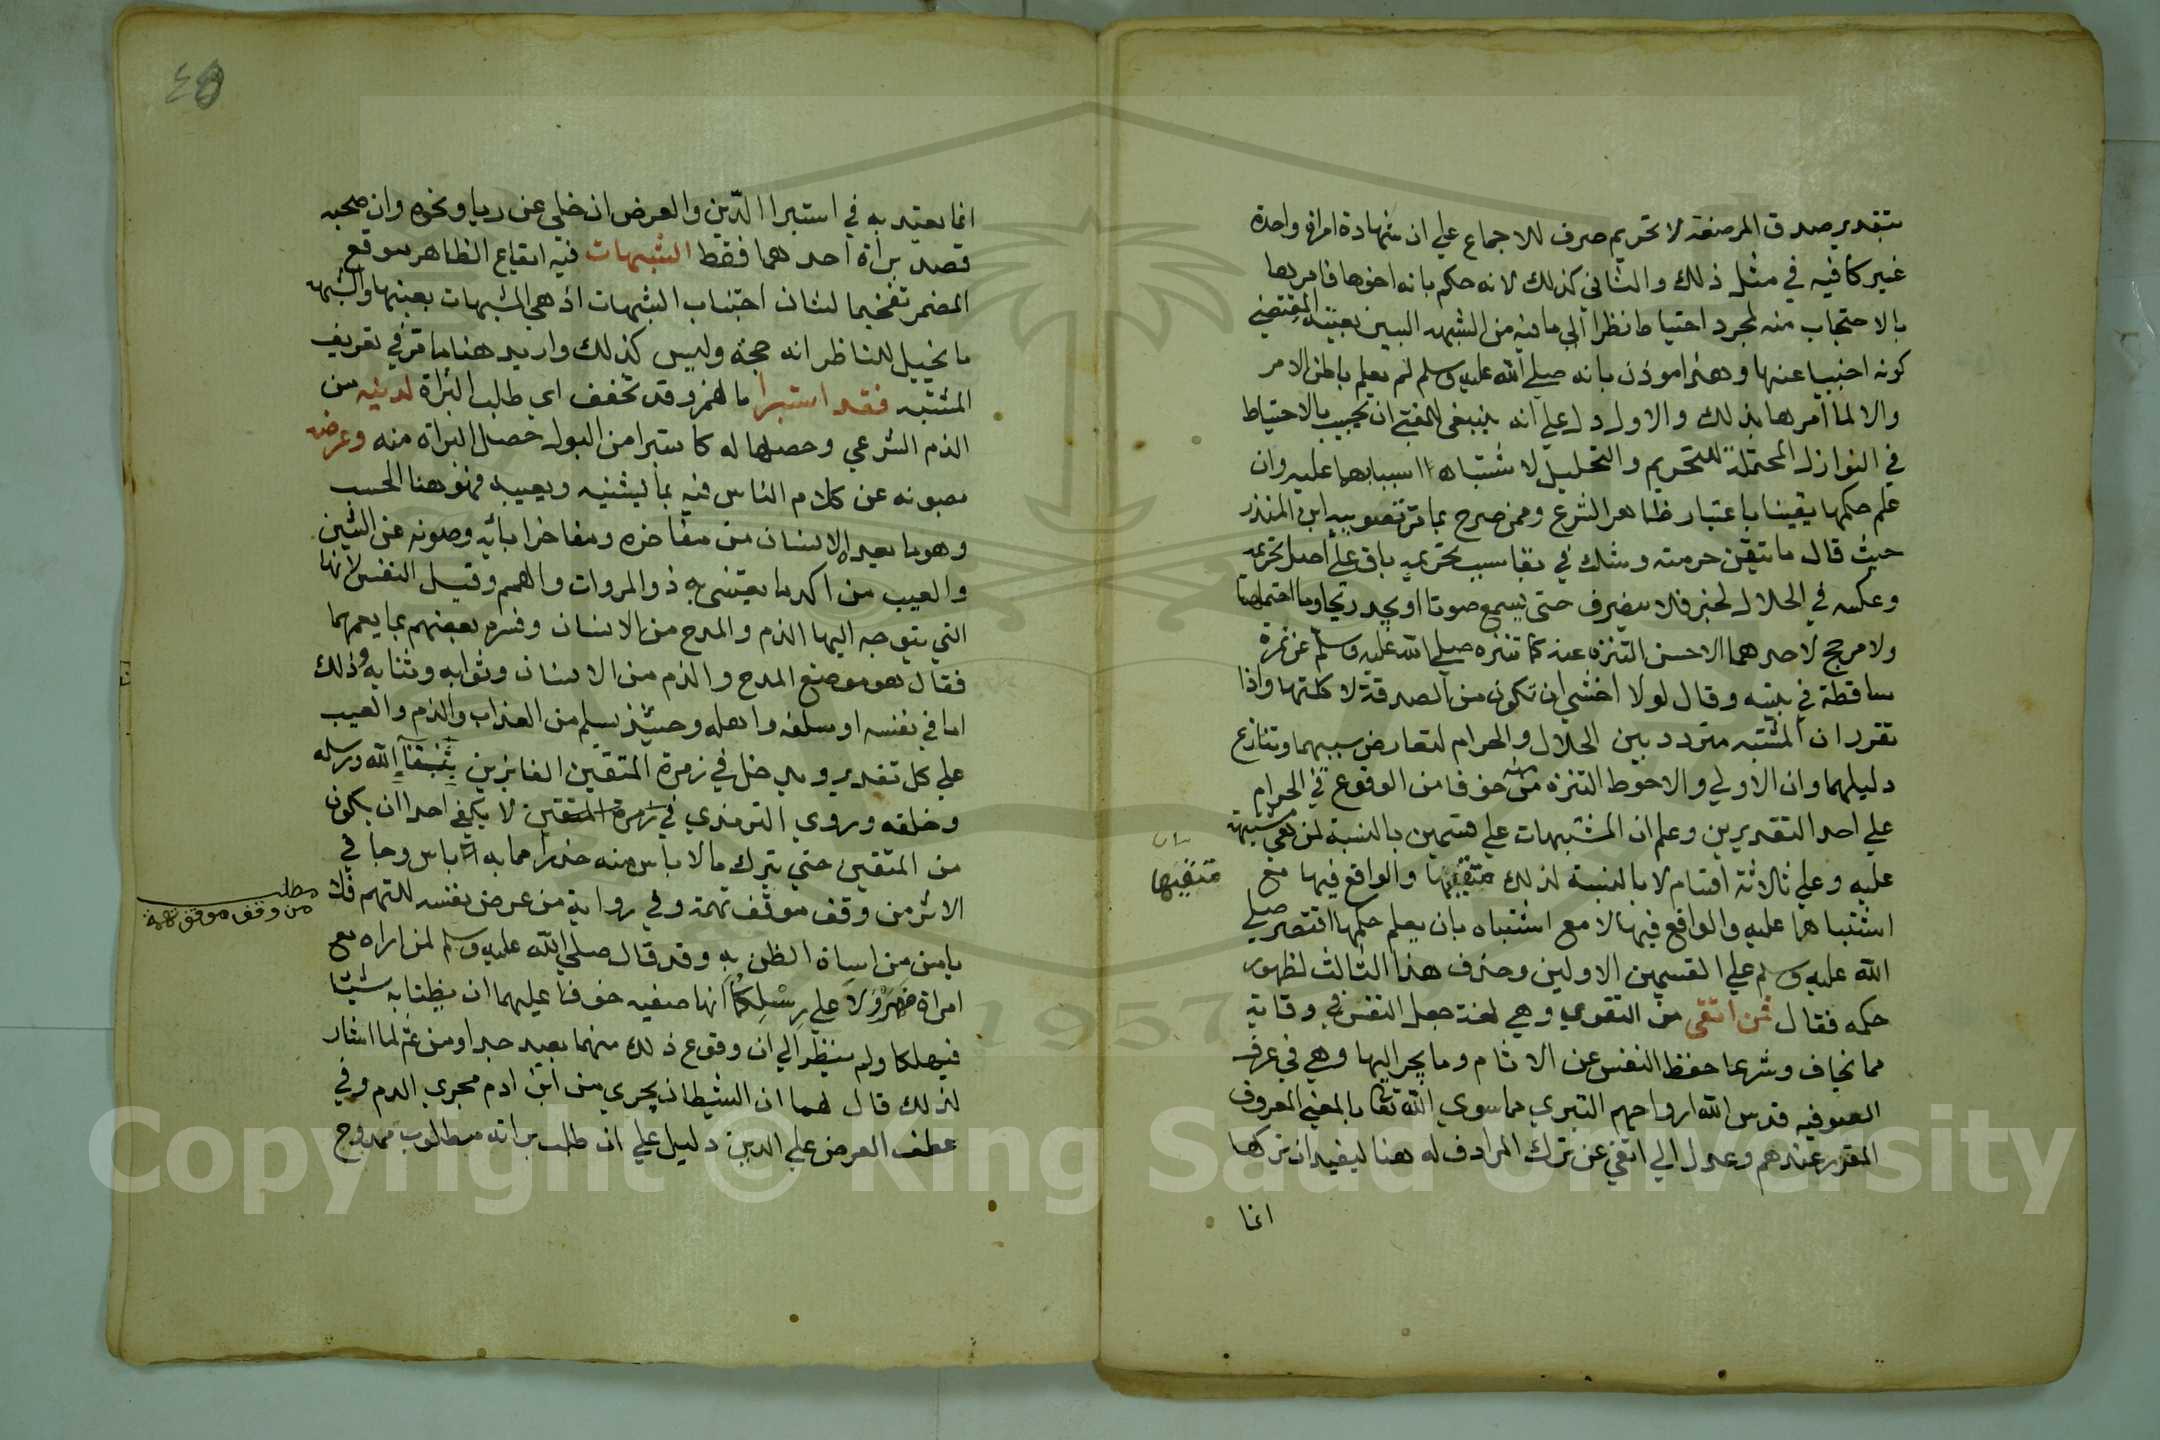 بتقدير صدق المرضعة لا تحريم صرف للاجماع علي ان شهادة امراة واحدة
غير كافية في مثل ذلك والثاني كذلك لانه حكم بانه اخوها فامرها
بالاحتجاب منه لمجرد احتياط نظرا الي ما فيه من الشبه البين بعتبة المقتضي
كونه اجنبيا عنها وهذا موذن بانه صلي الله عليه وسلم لم يعلم باطن الامر
والا لما امرها بذلك والاول دل علي انه ينبغي للمفتي ان يجيب بالاحتياط
في النوازل المحتملة للتحريم والتحليل لاشتباه اسبابها عليه وان
علم حكمها يقينا باعتبار ظاهر الشرع وممن صرح بما مر تصويبه ابن المنذر
حيث قال ما تيقن حرمته وشك في بقا سبب تحريمه باق علي اصل تحريمه
وعكسه في الحلال لخبر فلا ينصرف حتي يسمع صوتا او يجد ريحا وما احتملهما
ولا مرجح لاحدهما الاحسن التنزه عنه كما تنزه صلي الله عليه وسلم عن تمرة
ساقطة في بيته وقال لولا اخشي ان تكون من الصدقة لاكلتها واذا
تقرر ان المشتبه متردد بين الحلال والحرام لتعارض سببهما وتنازع
دليلهما وان الاولي والاحوط التنزه منه خوفا من الوقوع في الحرام
علي احد التقديرين وعلم ان المشتبهات علي قسمين بالنسبة لمن هي مشتبهة
عليه وعلي ثلاثة اقسام لا بالنسبة لذلك متقيها والواقع فيها مع
متقيها
اشتباهها عليه والواقع فيها لا مع اشتباه بان يعلم حكمها اقتصر صلي
الله عليه وسلم علي القسمين الاولين وحذف هذا الثالث لظهور
حكمه فقال فمن اتقي من التقوي وهي لغة جعل النفس في وقاية
مما يخاف وشرعا حفظ النفس عن الاثام وما يجر اليها وهي في عرف
الصوفيه قدس الله ارواحهم التبري مما سوي الله تعالي بالمعني المعروف
المقرر عندهم وعدل الي اتقي عن ترك المرادف له هنا ليفيد ان تركها
انما
انما يعتد به في استبرا الدين والعرض ان خلي عن ريا ونحوه وان صحبه
قصد براة احدهما فقط الشبهات فيه ايقاع الظاهر موقع
المضمر تفخيما لشان اجتناب الشبهات اذ هي المشبهات بعينها والشبهة
ما يخيل للناظر انه حجة وليس كذلك واريد هنا ما مر في تعريف
المشتبه فقد استبرا بالهمز وقد تخفف اي طلب البراة لدينه من
الذم الشرعي وحصلها له كاستبرا من البول حصل البراة منه وعرضه
بصونه عن كلام الناس فيه بما يشينه ويعيبه فهو هنا الحسب
وهو ما يعده الانسان من مفاخره ومفاخر ابائه وصونه عن الشين
والعيب من اكد ما يعتني به ذو المروات والهمم وقيل النفس لانها
التي يتوجه اليها الذم والمدح من الانسان وفسره بعضهم بما يعمهما
فقال هو موضع المدح والذم من الانسان وثوابه وثنايه وذلك
اما في نفسه او سلفه واهله وحينئذ يسلم من العذاب والذم والعيب
علي كل تقدير ويدخل في زمرة المتقين الفايزين بثنا الله ورسله
وخلقه وروي الترمذي في زمرة المتقين لا يكفي احدا ان يكون
من المتقين حتي يترك ما لا باس منه حذرا مما به باس وجا في
الاثر من وقف موقف تهمة وفي رواية من عرض نفسه للتهم فلا
مطلب
من وقف موقف تهمة
يامن من اساة الظن به وقد قال صلي الله عليه وسلم لمن راه مع
امراة فهرولا علي رسلكما انها صفيه خوفا عليهما ان يظنا به شيئا
فيهلكا ولم ينظر الي ان وقوع ذلك منهما بعيد جدا ومن ثم لما اشار
لذلك قال لهما ان الشيطان يجري من ابن ادم مجري الدم وفي
عطف العرض علي الدين دليل علي ان طلب براته مطلوب ممدوح
Copyright © King Saud University
1957